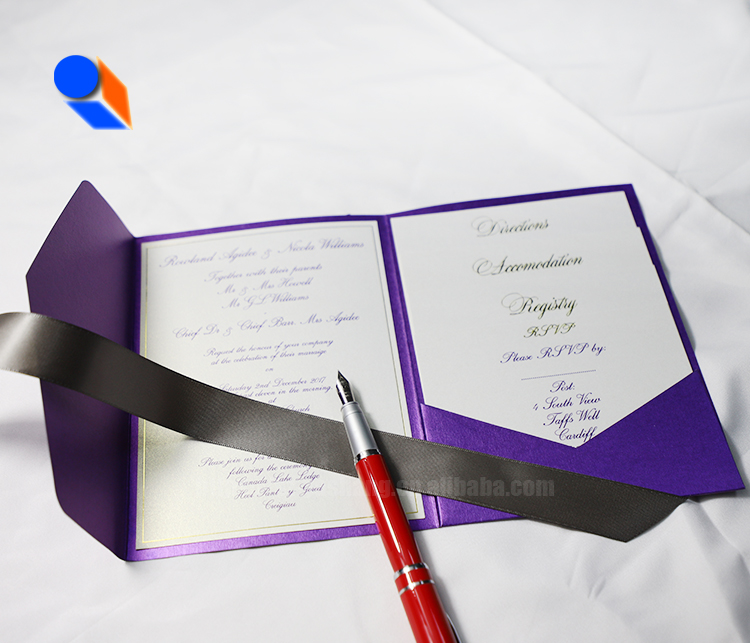 Rowland Agidee & Nicola Williams
Together with their parents
Mr & Mrs Howell
Mr G L Williams
Chief Dr & Chief Barr. Mrs Agidee
Request the honour of your company
at the celebration of their marriage
on
Saturday 2nd December 2017
eleven in the morning,
at
Church
Please join us for
following the ceremony
Canada Lake Lodge
Heol Pant - y Gored
Creigiau
Directions
Accomodation
Registry
RSVP
Please RSVP by:
Post:
4 South View
Taffs Well
Cardiff
.alibaba.com